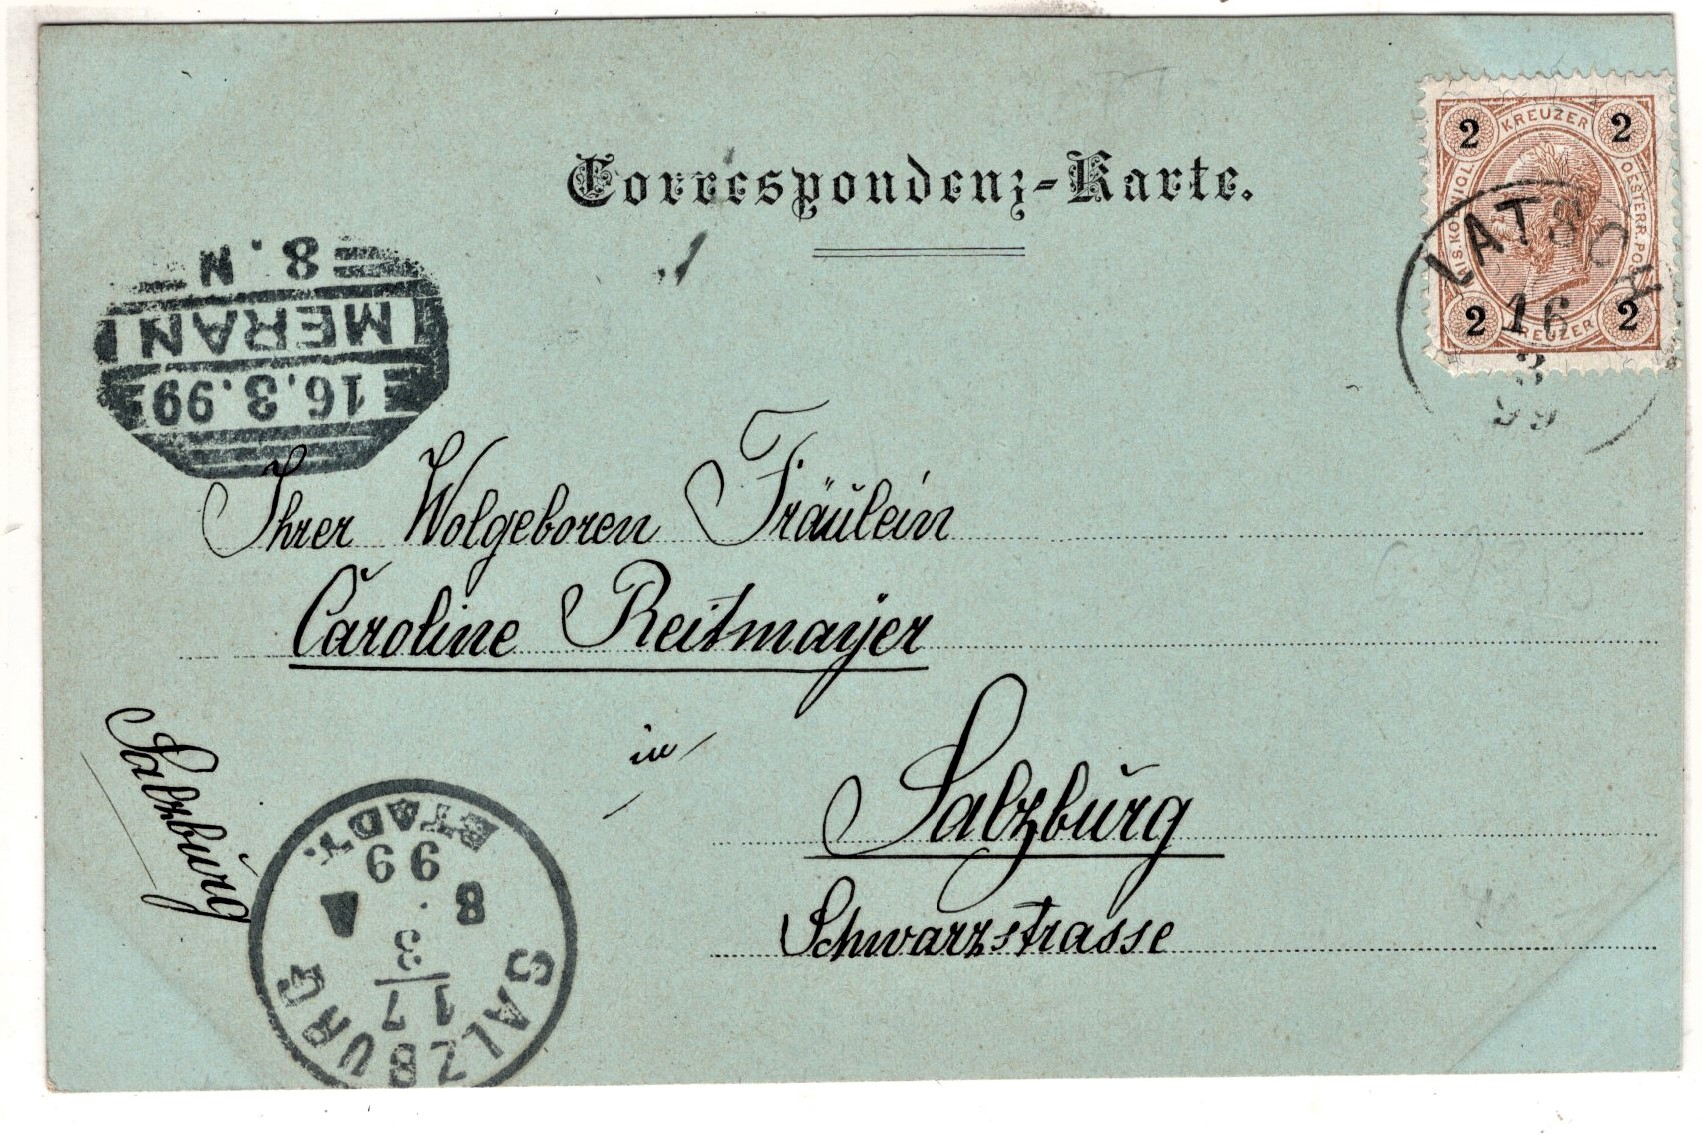 Correspondenz-Karte.
2 KREUZER 2
KAIS. KÖNIGL.
OESTERR. POST
2 KREUZER 2
LATSCH
16
3
99
8. N
MERAN
16.3.99
Ihrer Wolgeboren Fräulein
Caroline Reitmayer
in
Salzburg
Schwarzstrasse
Salzburg
SALZBURG
17
3
8. A
99
STADT.